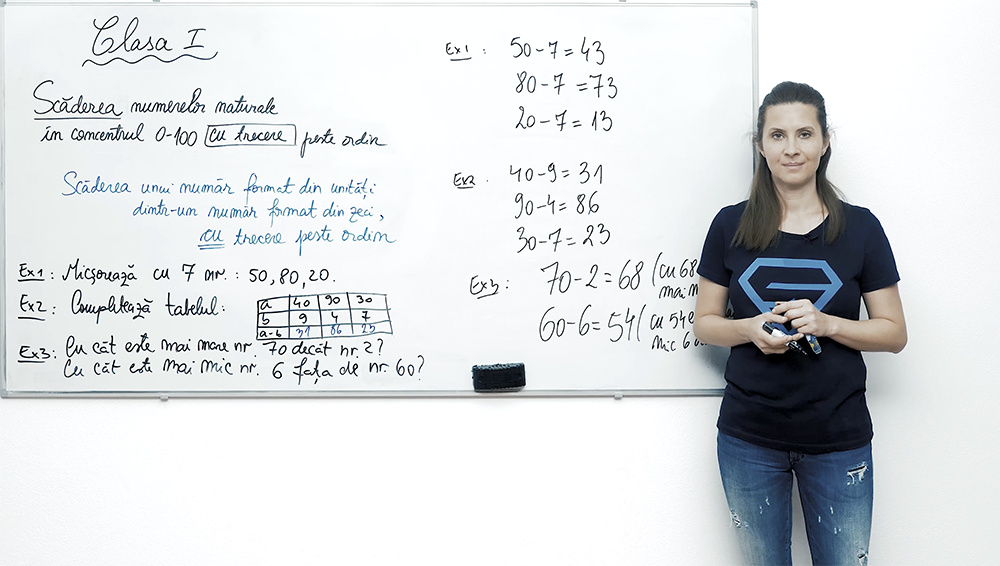 Clasa I
Scăderea numerelor naturale
în concentrul 0-100 cu trecere peste ordin
Scăderea unui număr format din unități
dintr-un număr format din zeci,
cu trecere peste ordin
Ex1: Micșorează cu 7 nr.: 50, 80, 20.
Ex2: Completează tabelul:
a 40 90 30
b 9 4 7
a-b 31 86 23
Ex3: Cu cât este mai mare nr. 70 decât nr. 2?
Cu cât este mai mic nr. 6 față de nr. 60?
Ex1: 50-7=43
80-7=73
20-7=13
Ex2. 40-9=31
90-4=86
30-7=23
Ex3: 70-2=68 (cu 68
mai
60-6=54 (cu 54
mic 6